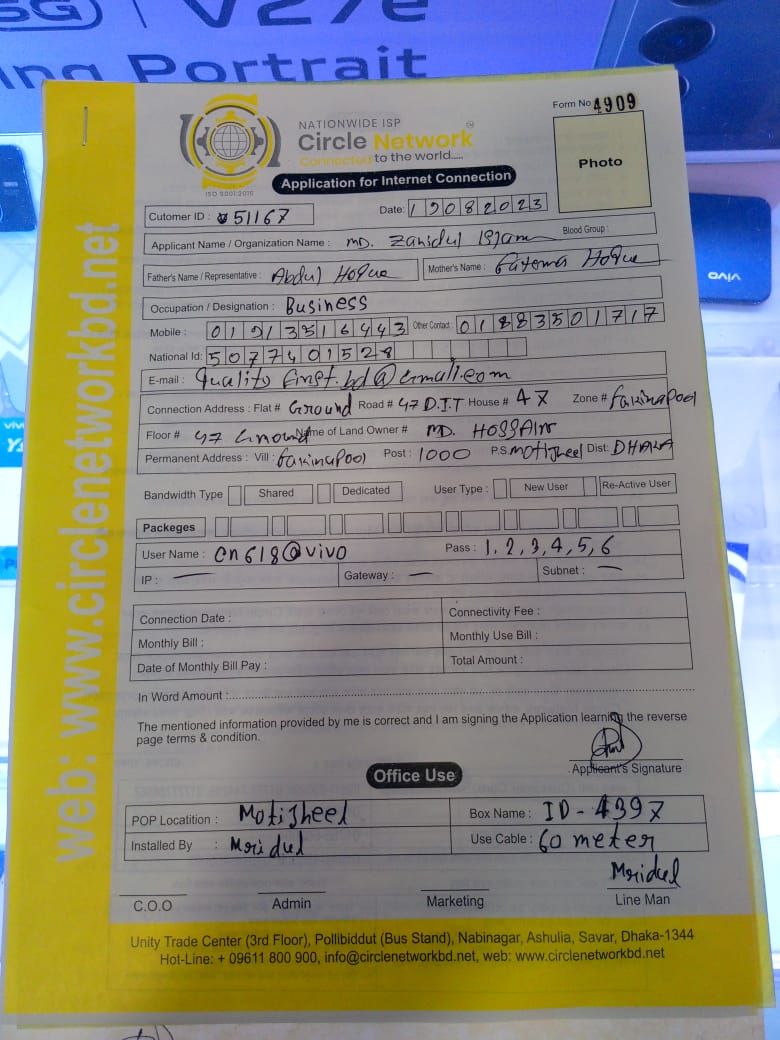 5G V27e
ing Portrait
Form No 4909
NATIONWIDE ISP
Circle Network
Connected to the world.....
ISO 9001:2015
Application for Internet Connection
Photo
Cutomer ID : 51167
Date: 19082023
Applicant Name / Organization Name : MD. Zahidul Islam Blood Group :
Father's Name / Representative : Abdul Hoque Mother's Name : Fatema Hoque
Occupation / Designation : Business
Mobile : 01913516443 Other Contact 01883501717
National Id: 5077401528
E-mail : quality first.bd@Gmail.com
Connection Address : Flat # Ground Road # 47 D.I.T House # 47 Zone # fakirapool
Floor # 47 Ground Name of Land Owner # MD. HOSSAIN
Permanent Address : Vill : fakirapool Post : 1000 P.S. Motijheel Dist: DHAKA
Bandwidth Type Shared Dedicated User Type : New User Re-Active User
Packeges
User Name : cn618@vivo Pass : 1,2,3,4,5,6
IP : — Gateway : — Subnet : —
Connection Date : Connectivity Fee :
Monthly Bill : Monthly Use Bill :
Date of Monthly Bill Pay : Total Amount :
In Word Amount :
The mentioned information provided by me is correct and I am signing the Application learning the reverse
page terms & condition.
Applicant's Signature
Office Use
POP Locatition : Motijheel Box Name : ID-4397
Installed By : Mridul Use Cable : 60 meter
Mridul
C.O.O Admin Marketing Line Man
Unity Trade Center (3rd Floor), Pollibiddut (Bus Stand), Nabinagar, Ashulia, Savar, Dhaka-1344
Hot-Line: + 09611 800 900, info@circlenetworkbd.net, web: www.circlenetworkbd.net
web: www.circlenetworkbd.net
vivo
vivo